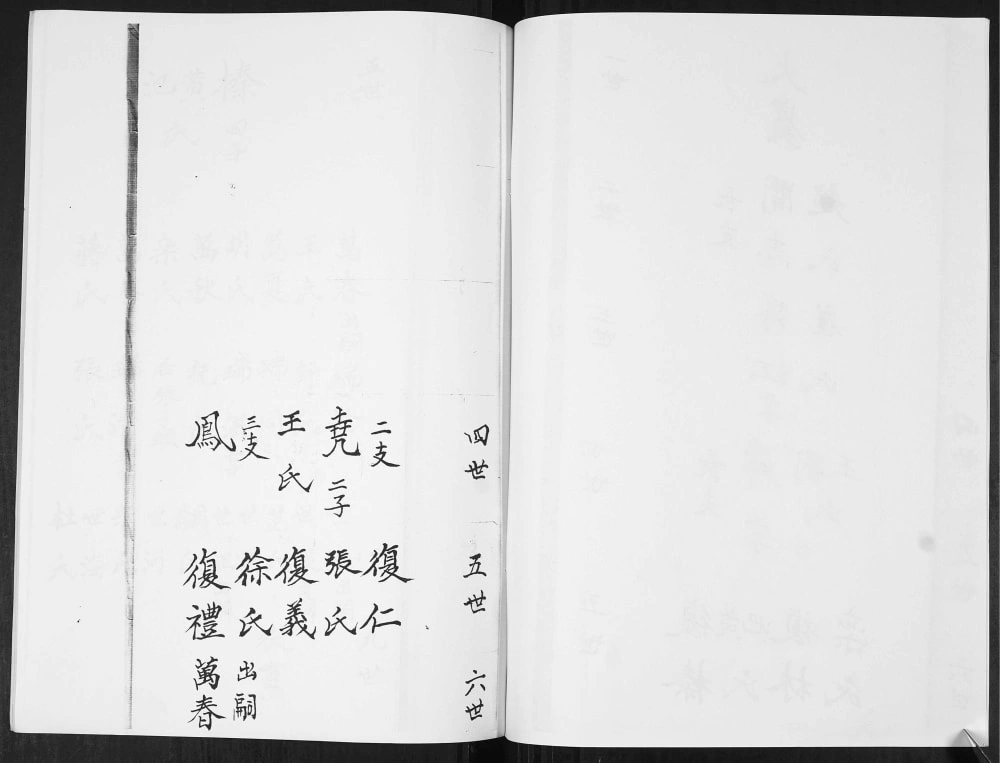 四世
五世
六世
二支
堯 二子
王氏
三支
鳳
復仁
張氏
復義
徐氏 出嗣
復禮 萬春